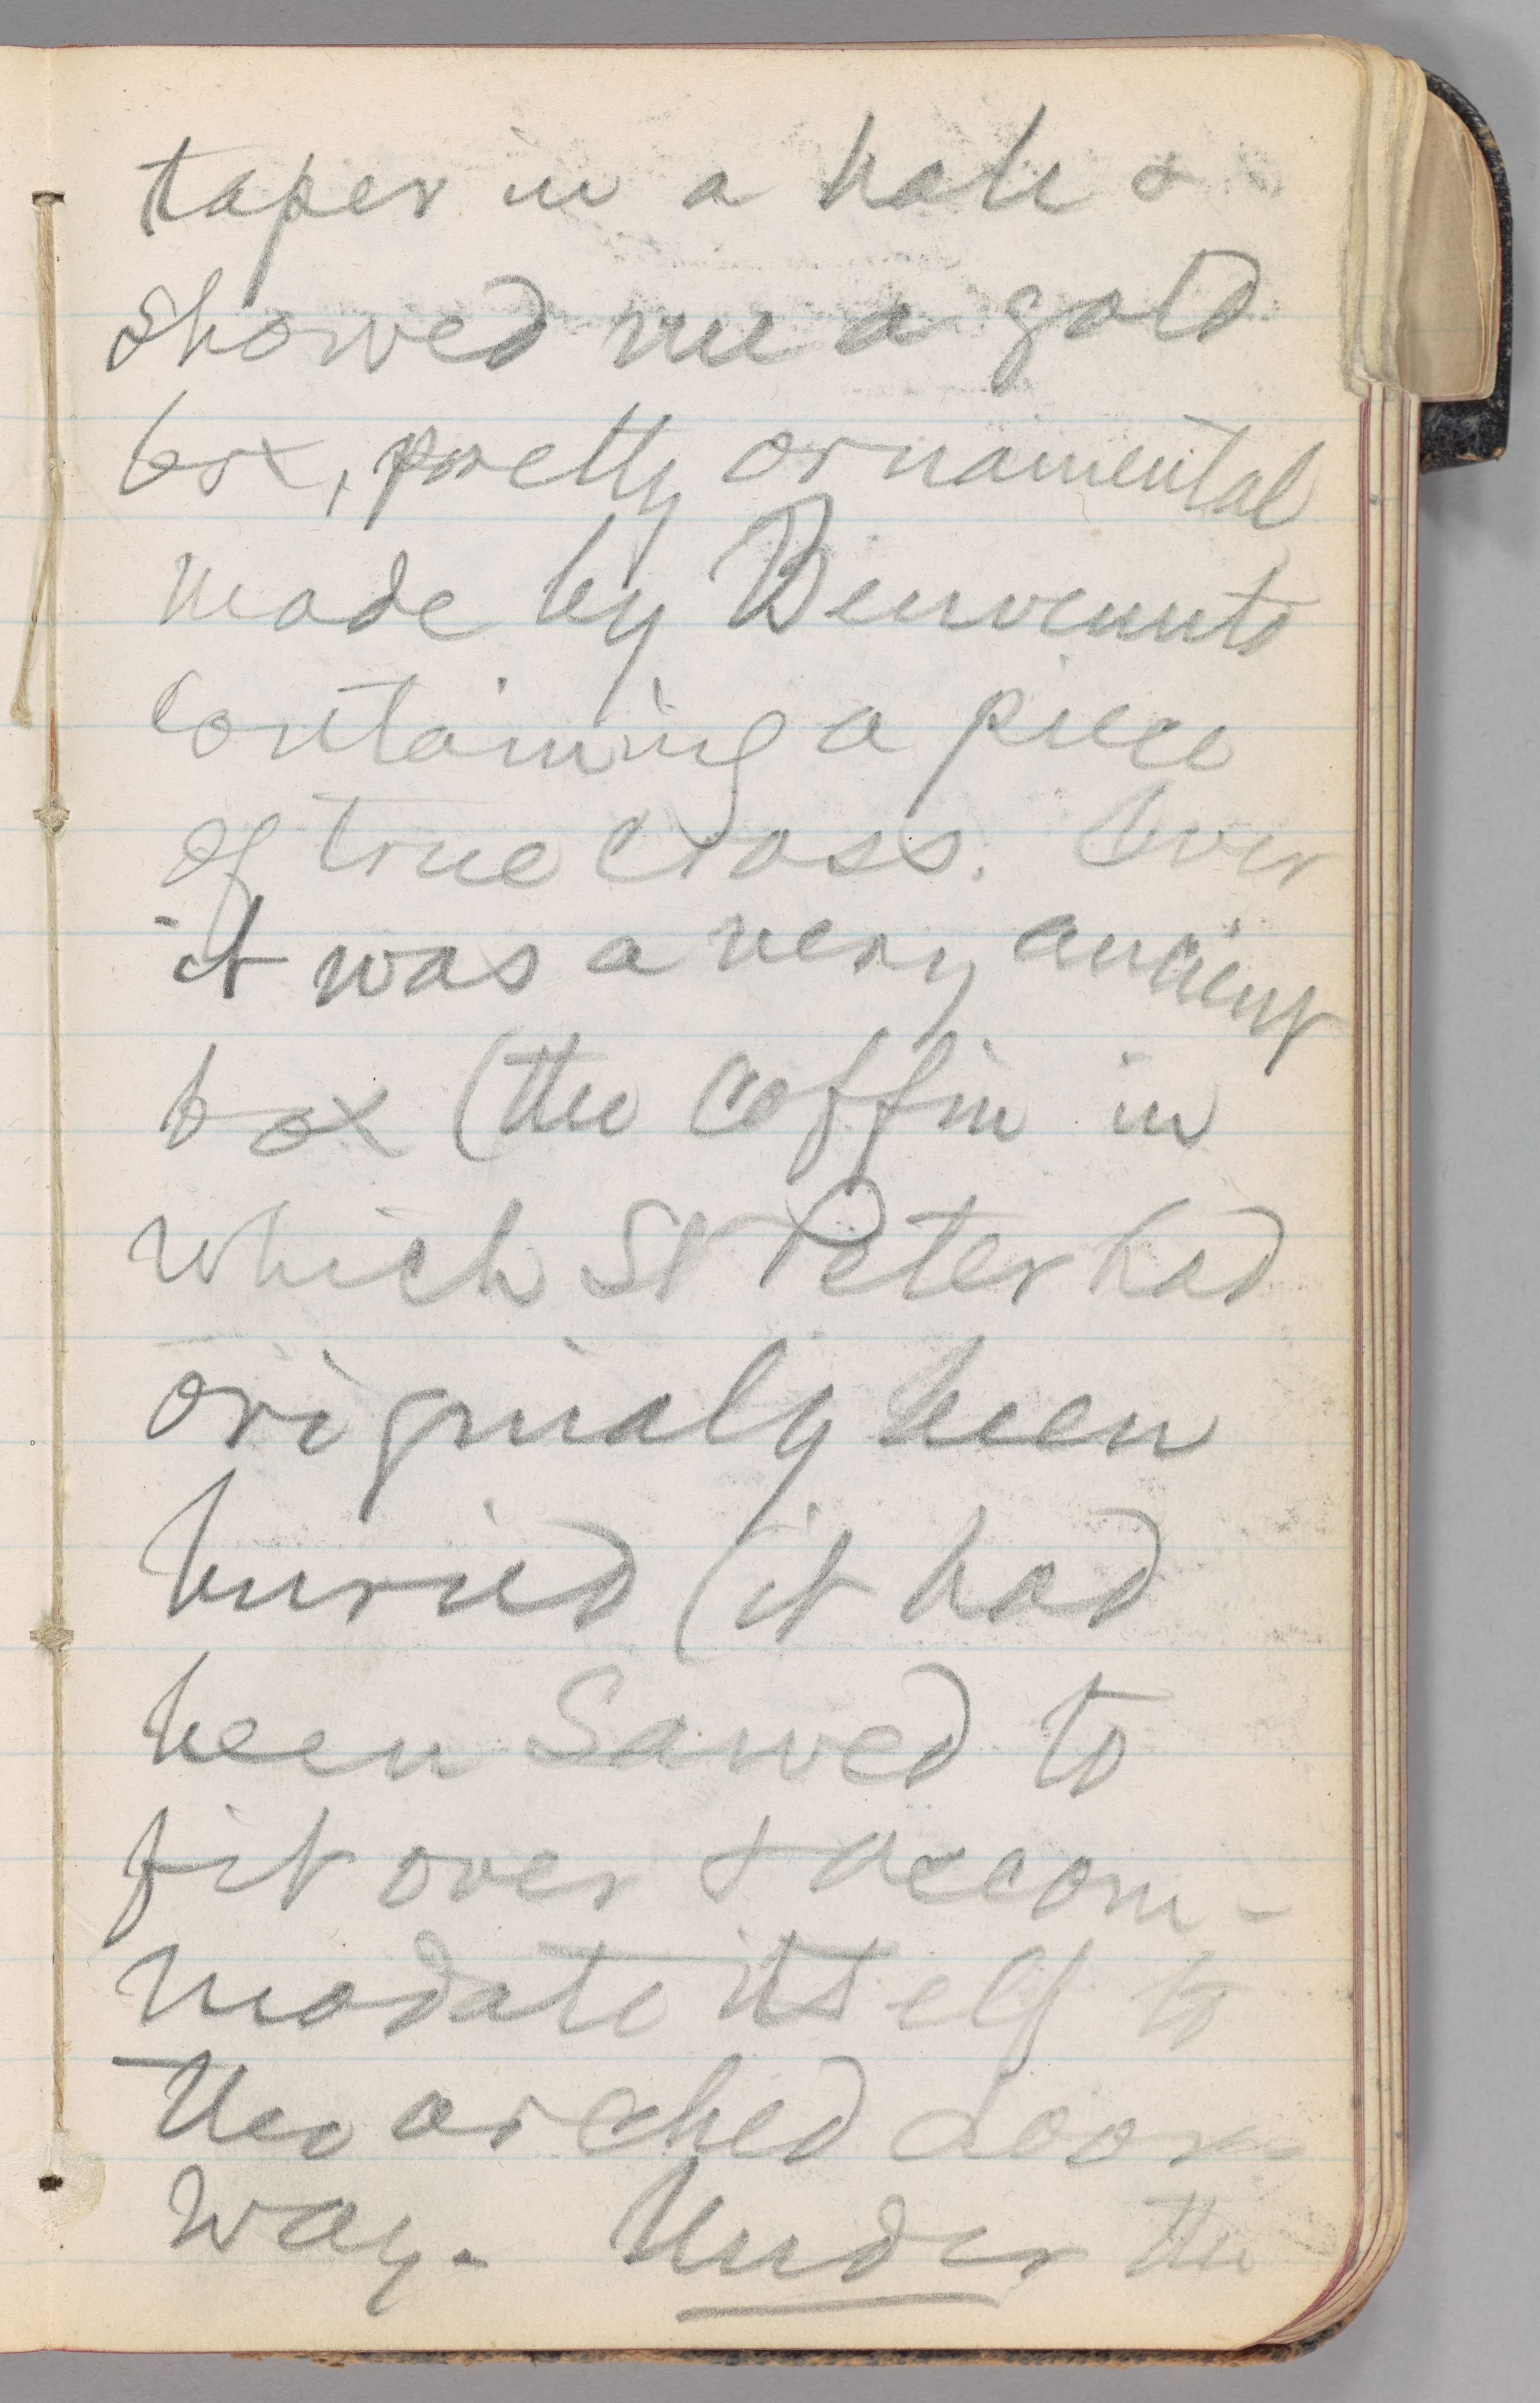 taper in a hole &
showed me a gold
box, pretty ornamental
made by Benvenuto
containing a piece
of true cross. Over
it was a very ancient
box (the coffin in
which St Peter had
originaly been
buried (it had
been sawed to
fit over & accom-
modate itself to
the arched door
way. Under the